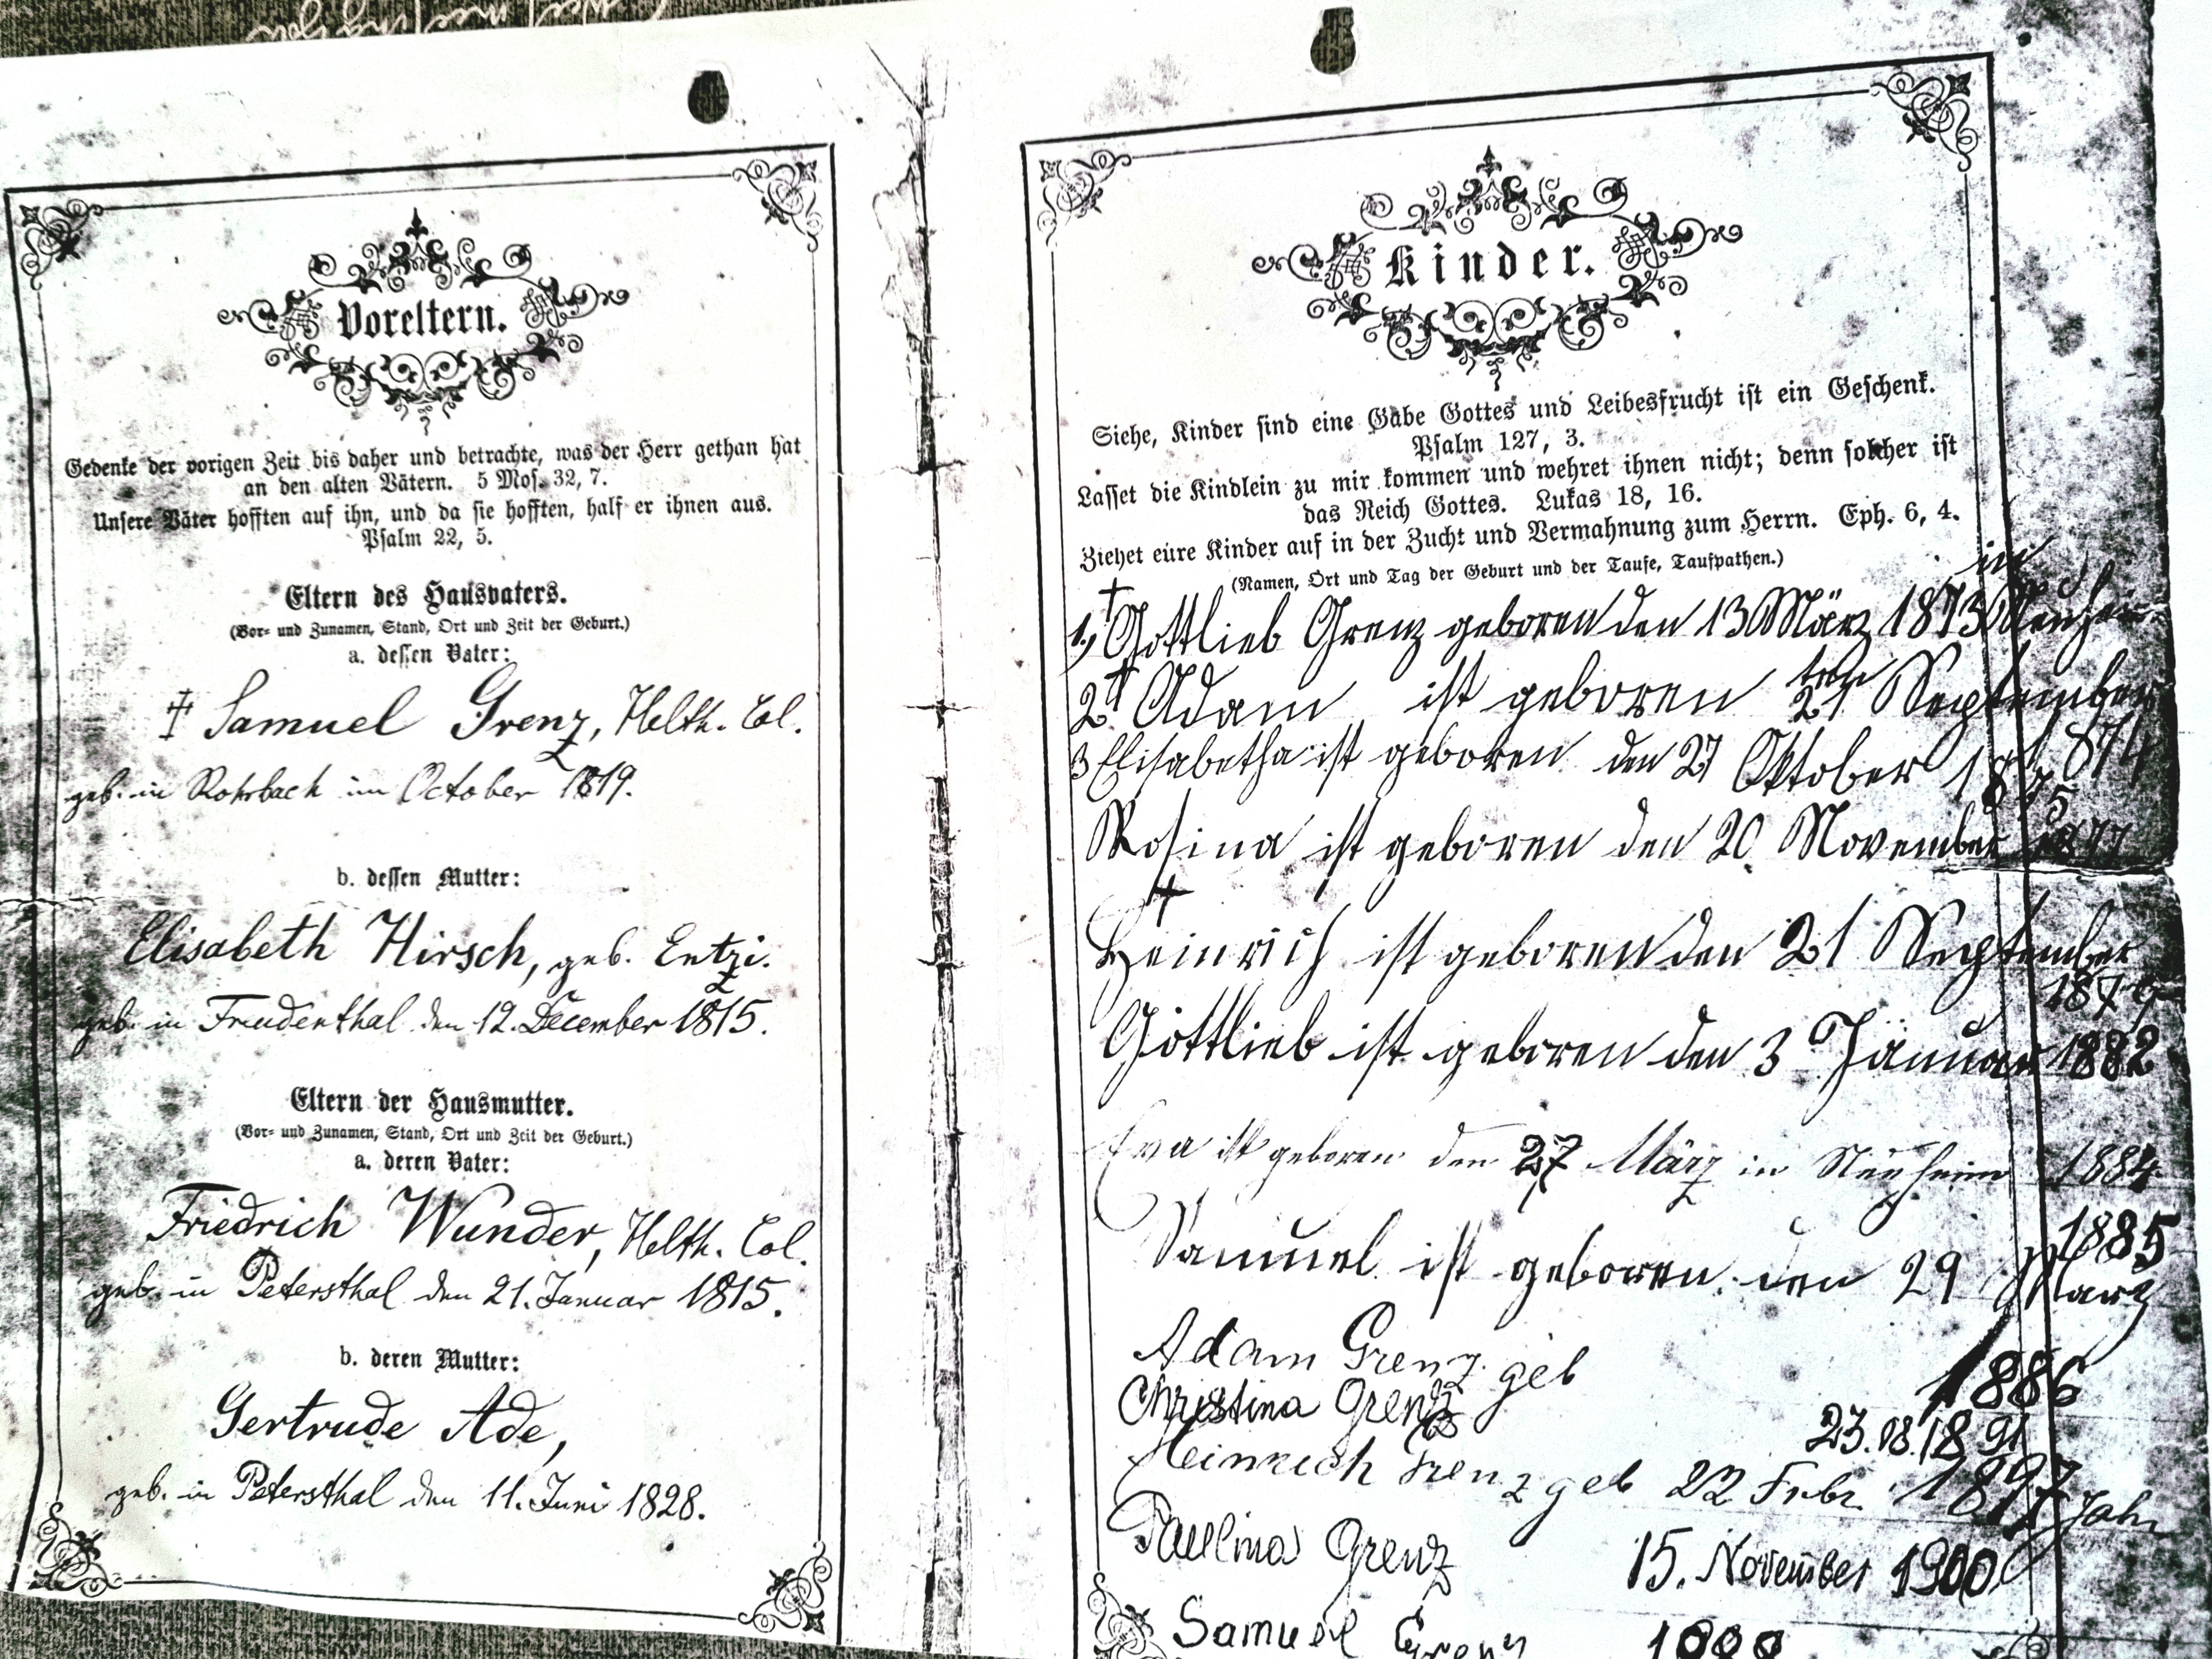 Voreltern.
Gedenke der vorigen Zeit bis daher und betrachte, was der Herr gethan hat
an den alten Vätern. 5 Mos. 32, 7.
Unsere Väter hofften auf ihn, und da sie hofften, half er ihnen aus.
Psalm 22, 5.
Eltern des Hausvaters.
(Vor- und Zunamen, Stand, Ort und Zeit der Geburt.)
a. dessen Vater:
‡ Samuel Grenz, Helth. Col.
geb. in Rohrbach im October 1819.
b. dessen Mutter:
Elisabeth Hirsch, geb. Entzi.
geb. in Freudenthal den 12. December 1815.
Eltern der Hausmutter.
(Vor- und Zunamen, Stand, Ort und Zeit der Geburt.)
a. deren Vater:
Friedrich Wunder, Helth. Col.
geb. in Petersthal den 21. Januar 1815.
b. deren Mutter:
Gertrude Ade,
geb. in Petersthal den 11. Juni 1828.
Kinder.
Siehe, Kinder sind eine Gabe Gottes und Leibesfrucht ist ein Geschenk.
Psalm 127, 3.
Lasset die Kindlein zu mir kommen und wehret ihnen nicht; denn solcher ist
das Reich Gottes. Lukas 18, 16.
Ziehet eure Kinder auf in der Zucht und Vermahnung zum Herrn. Eph. 6, 4.
(Namen, Ort und Tag der Geburt und der Taufe, Taufpathen.)
1, † Gottlieb Grenz geboren den 13 März 1873 in
2 † Adam ist geboren 21 ten September 874
3 Elisabetha ist geboren den 27 Oktober 1875
Rosina ist geboren den 20 November
† Heinrich ist geboren den 21 September
1879
Gottlieb ist geboren den 3 Januar 1882
Eva ist geboren den 27 März in Neuheim 1884
Samuel ist geboren den 29 März 1885
Adam Grenz geb 1886
Christina Grenz 23.08.1891
Heinrich Grenz geb 22 Febr. 1897 Jahr
Paulina Grenz 15. November 1900
Samuel Grenz